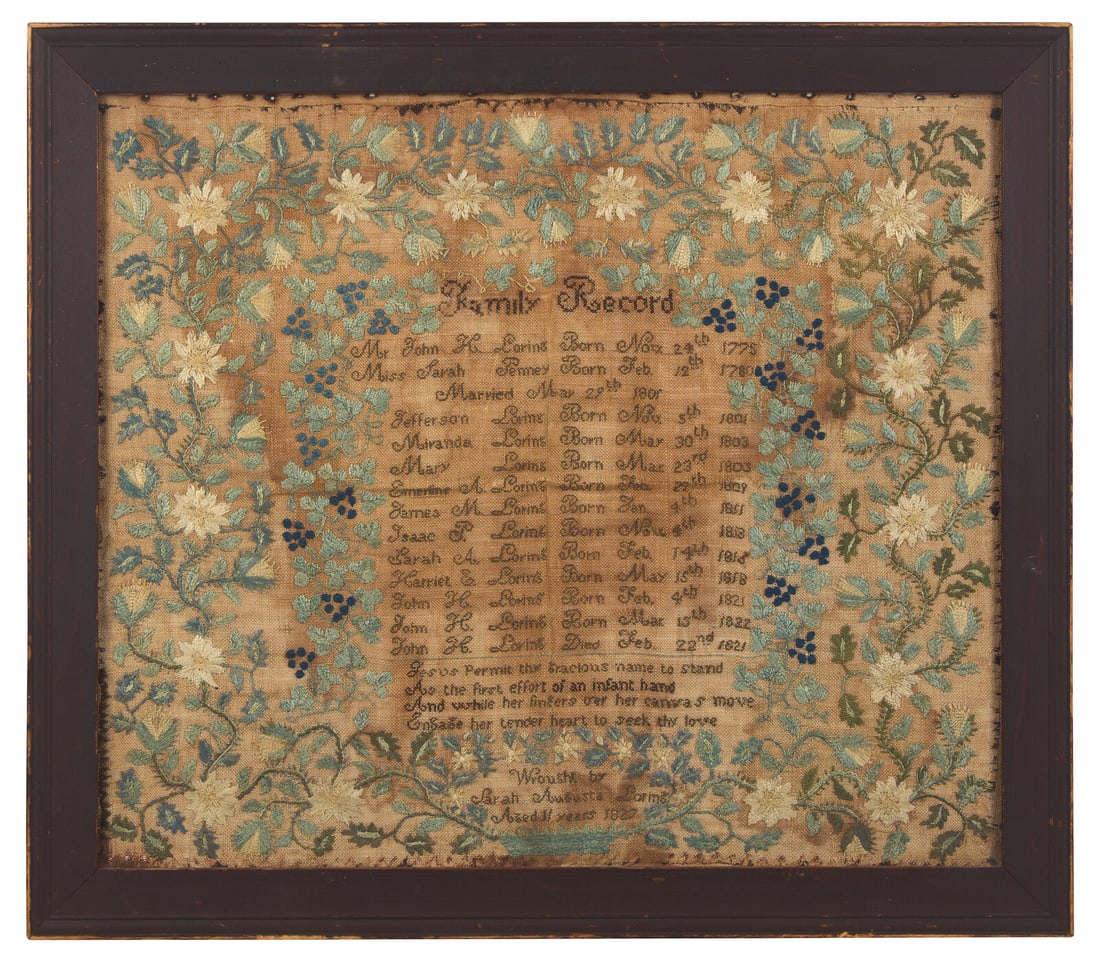 Family Record
Mr John H. Loring Born Nov. 24th 1775
Miss Sarah Penney Born Feb. 12th 1780
Married May 29th 1801
Jefferson Loring Born Nov. 5th 1801
Miranda Loring Born May 30th 1803
Mary Loring Born Mar. 23rd
Emerline A. Loring Born Feb.
James M. Loring Born Jan. 4th 1811
Isaac P. Loring Born Nov. 1813
Sarah A. Loring Born Feb. 14th
Harriet E. Loring Born May 15th 1818
John H. Loring Born Feb. 4th 1821
John H. Loring Born Mar. 15th 1822
John H. Loring Died Feb. 22nd 1821
Jesus Permit thy Gracious name to stand
As the first effort of an infant hand
And while her fingers oer her canvas move
Engage her tender heart to seek thy love
Wrought by
Sarah Augusta Loring
Aged 11 years 1827